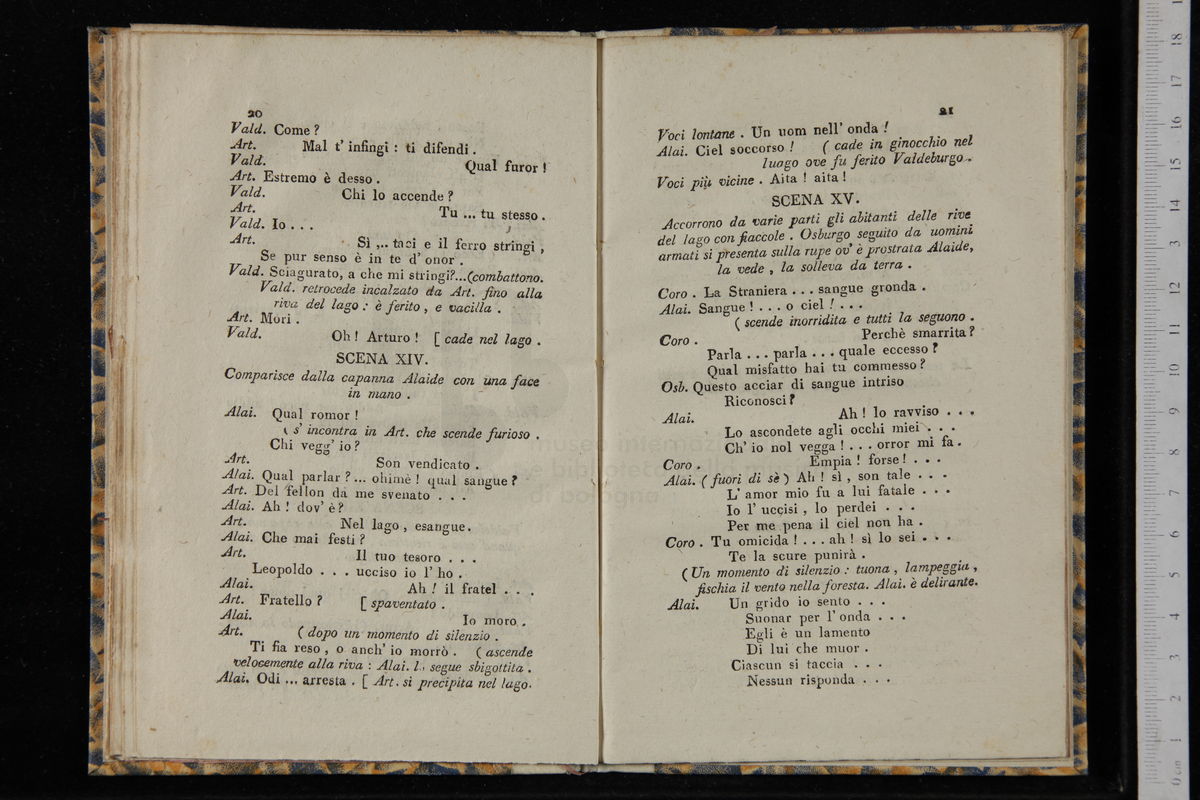 20
Vald. Come ?
Art. Mal t' infingi : ti difendi .
Vald. Qual furor !
Art. Estremo è desso .
Vald. Chi lo accende ?
Art. Tu ... tu stesso .
Vald. Io . . .
Art. Sì ,.. taci e il ferro stringi ,
Se pur senso è in te d' onor .
Vald. Sciagurato, a che mi stringi?...(combattono.
Vald. retrocede incalzato da Art. fino alla
riva del lago : è ferito , e vacilla .
Art. Mori .
Vald. Oh ! Arturo ! [ cade nel lago .
SCENA XIV.
Comparisce dalla capanna Alaide con una face
in mano .
Alai. Qual romor !
( s' incontra in Art. che scende furioso .
Chi vegg' io ?
Art. Son vendicato .
Alai. Qual parlar ? ... ohimè ! qual sangue ?
Art. Del fellon da me svenato . . .
Alai. Ah ! dov' è ?
Art. Nel lago , esangue.
Alai. Che mai festi ?
Art. Il tuo tesoro . . .
Leopoldo . . . ucciso io l' ho .
Alai. Ah ! il fratel . . .
Art. Fratello ? [ spaventato .
Alai. Io moro .
Art. ( dopo un momento di silenzio .
Ti fia reso , o anch' io morrò . ( ascende
velocemente alla riva : Alai. lo segue sbigottita .
Alai. Odi ... arresta . [ Art. si precipita nel lago.
21
Voci lontane . Un uom nell' onda !
Alai. Ciel soccorso ! ( cade in ginocchio nel
luogo ove fu ferito Valdeburgo .
Voci più vicine . Aita ! aita !
SCENA XV.
Accorrono da varie parti gli abitanti delle rive
del lago con fiaccole . Osburgo seguito da uomini
armati si presenta sulla rupe ov' è prostrata Alaide,
la vede , la solleva da terra .
Coro . La Straniera . . . sangue gronda .
Alai. Sangue ! . . . o ciel ! . . .
( scende inorridita e tutti la seguono .
Coro . Perchè smarrita ?
Parla . . . parla . . . quale eccesso ?
Qual misfatto hai tu commesso ?
Osb. Questo acciar di sangue intriso
Riconosci ?
Alai. Ah ! lo ravviso . . .
Lo ascondete agli occhi miei . . .
Ch' io nol vegga ! . . . orror mi fa .
Coro . Empia ! forse ! . . .
Alai. ( fuori di sè ) Ah ! sì , son tale . . .
L' amor mio fu a lui fatale . . .
Io l' uccisi , lo perdei . . .
Per me pena il ciel non ha .
Coro . Tu omicida ! . . . ah ! sì lo sei . . .
Te la scure punirà .
( Un momento di silenzio : tuona , lampeggia ,
fischia il vento nella foresta. Alai. è delirante.
Alai. Un grido io sento . . .
Suonar per l' onda . . .
Egli è un lamento
Di lui che muor .
Ciascun si taccia . . .
Nessun risponda . . .